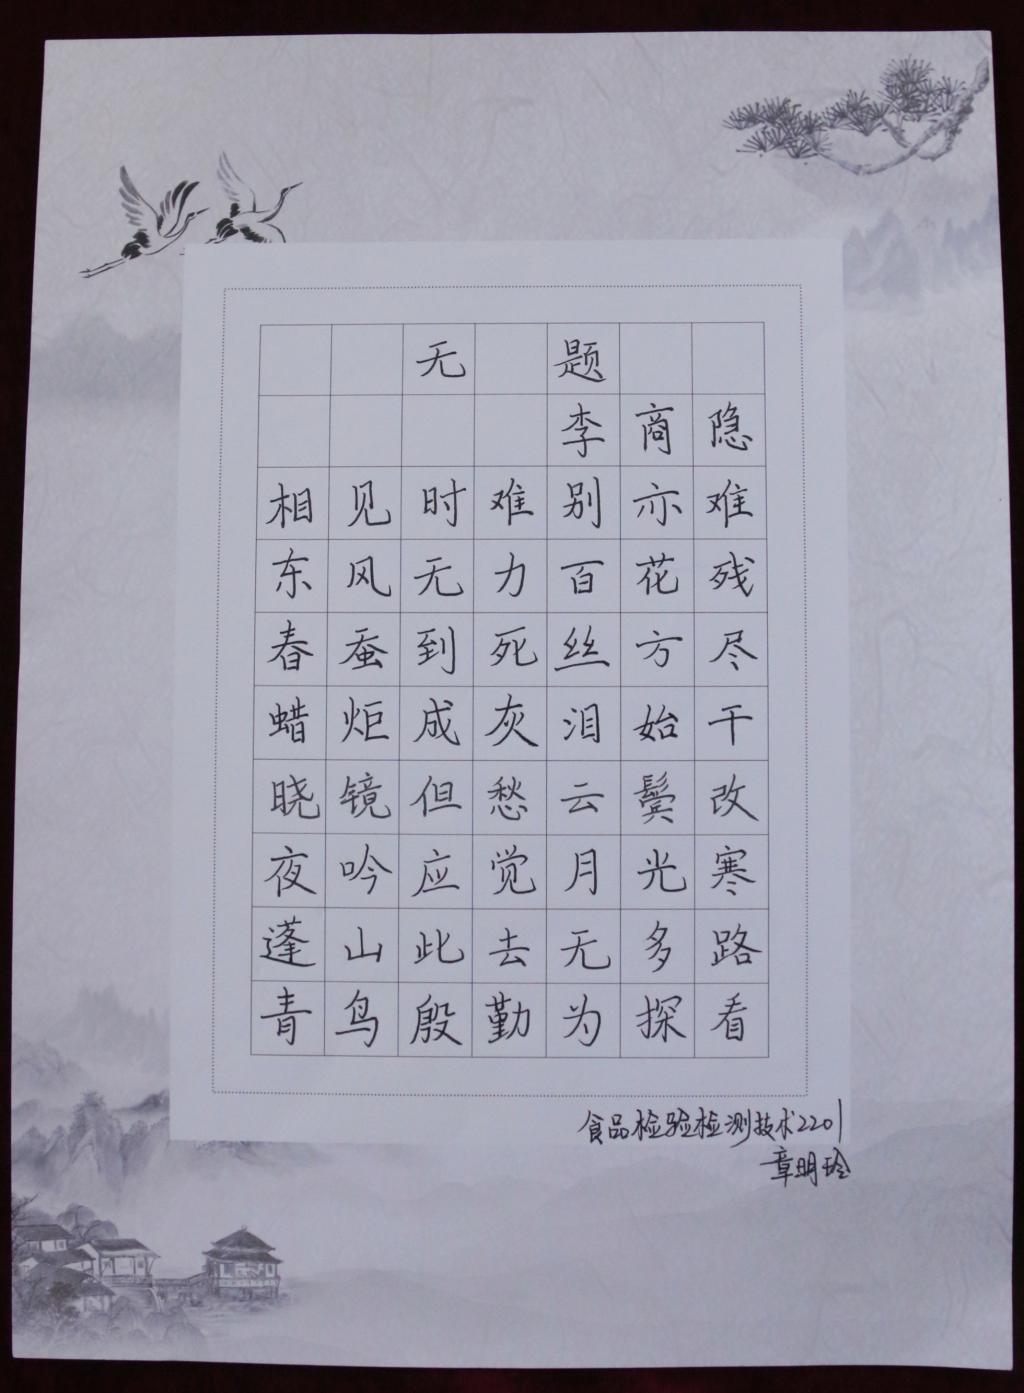 无题
李商隐
相见时难别亦难
东风无力百花残
春蚕到死丝方尽
蜡炬成灰泪始干
晓镜但愁云鬓改
夜吟应觉月光寒
蓬山此去无多路
青鸟殷勤为探看
食品检验检测技术2201
章明玲